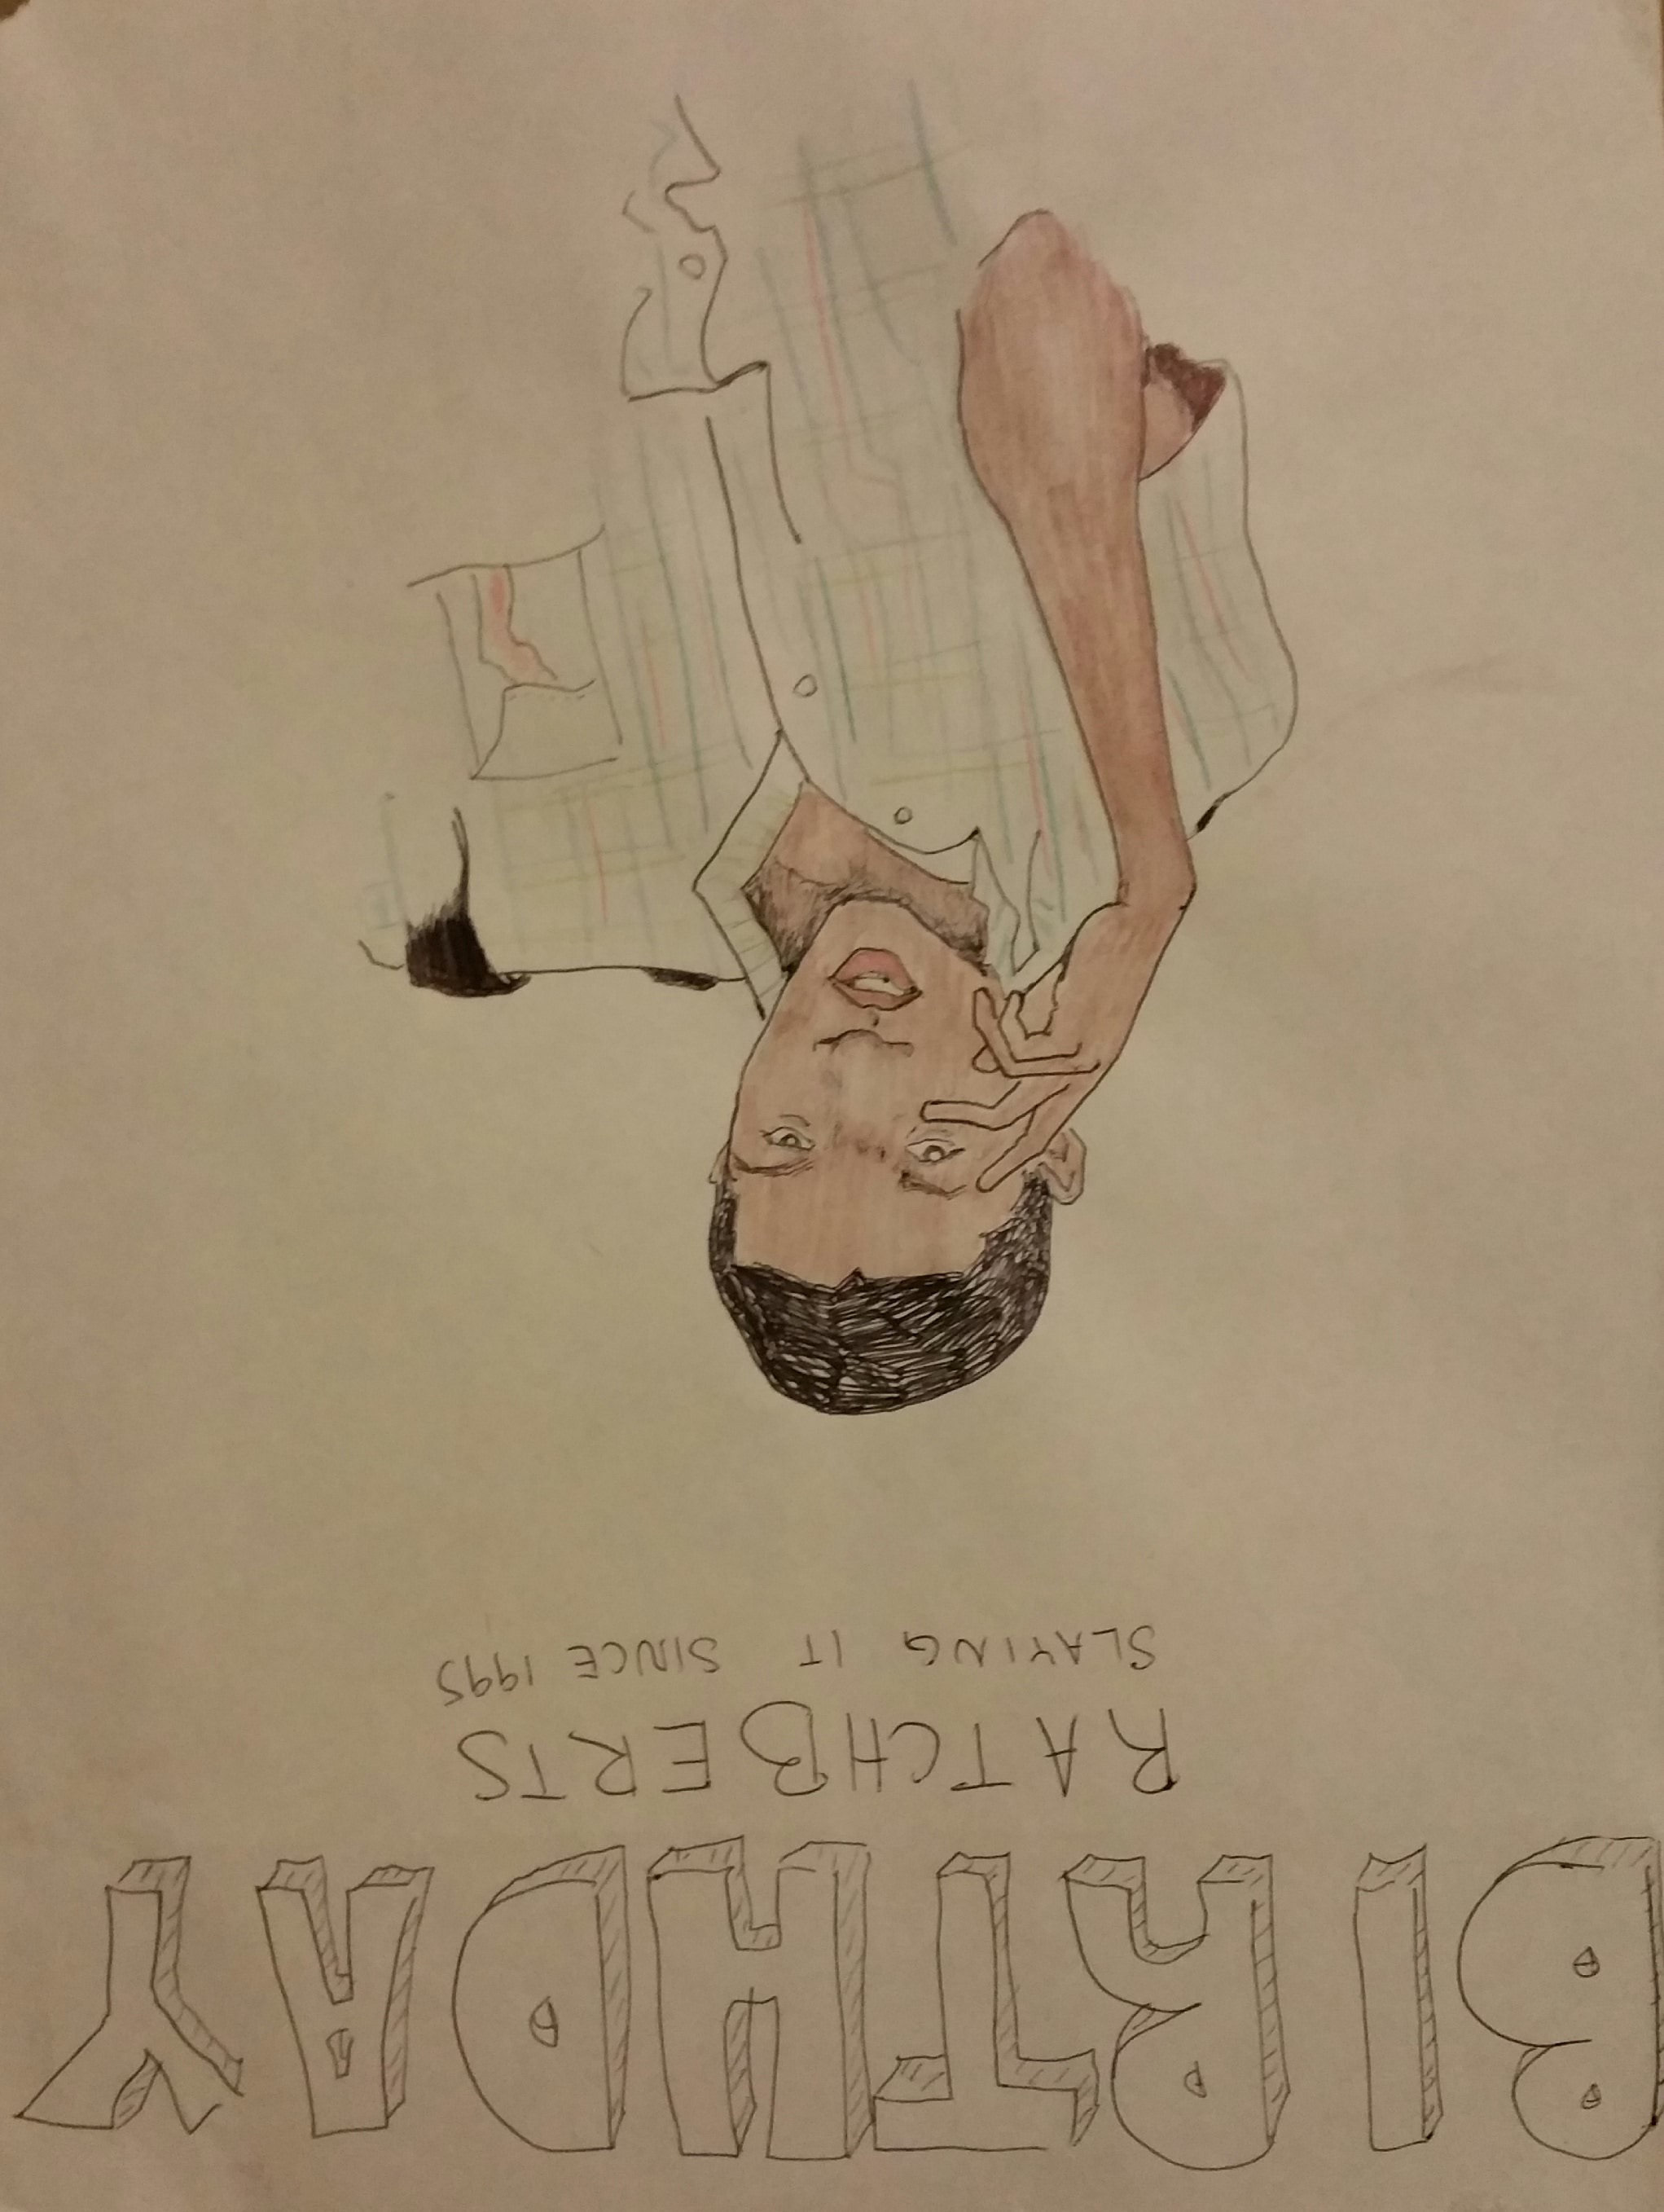 BIRTHDAY
RATCHBERTS
SLAYING IT SINCE 1995